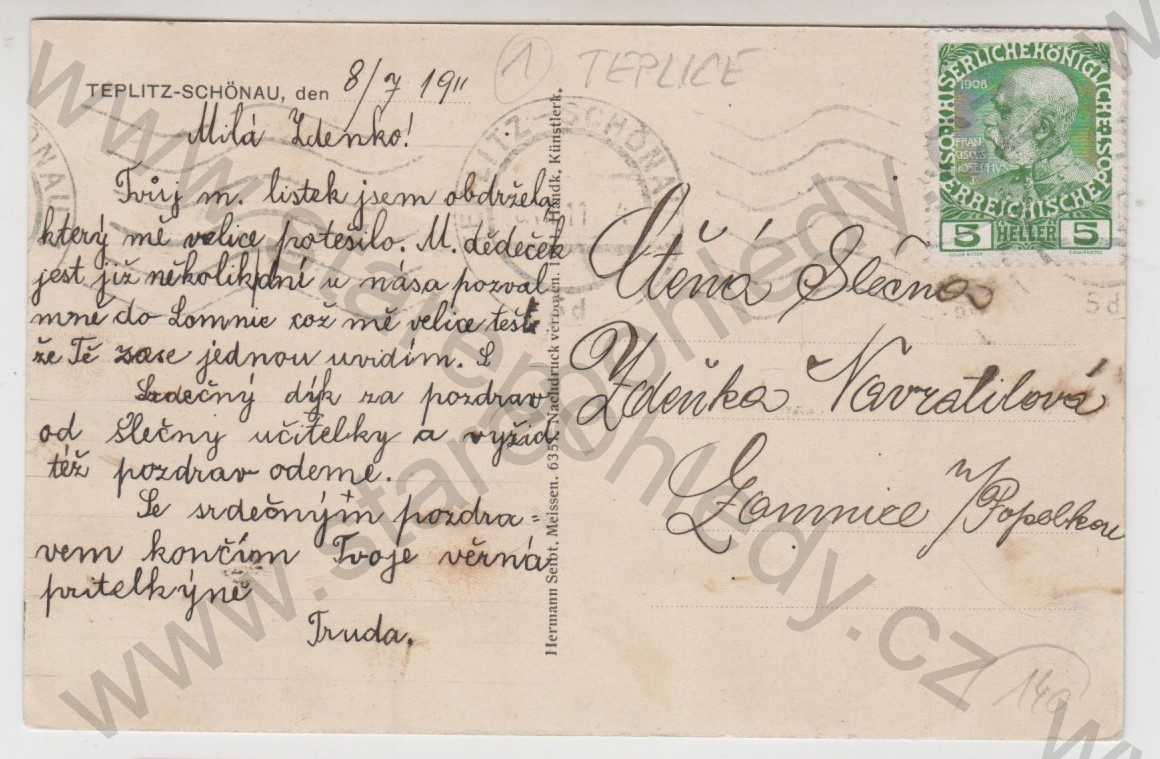 TEPLITZ-SCHÖNAU, den 8/7 1911
Milá Zdenko!
Tvůj m. listek jsem obdržela,
který mě velice potesilo. M. dědeček
jest již několik dní u nás a pozval
mně do Lomnic což mě velice teší
že Tě zase jednou uvidím. S
Srdečný dýk za pozdrav
od šlečny učitelky a vyžid
též pozdrav odeme.
Se srdečným pozdra=
vem končim Tvoje věrná
pritelkyně
Truda.
Hermann Seibt, Meissen. 635 Nachdruck verboten. Handk. Künstlerk.
1 TEPLICE
KAISERLICHE KÖNIGLICHE
ÖSTERREICHISCHE POST
1908
FRAN
CISCVS
IOSEPHVS I
5 HELLER 5
TEPLITZ-SCHÖNAU
11
5d
Ctěná Slečna
Zdeňka Navratilová
Lomnice n/Popelkou
140
www.starepohledy.cz